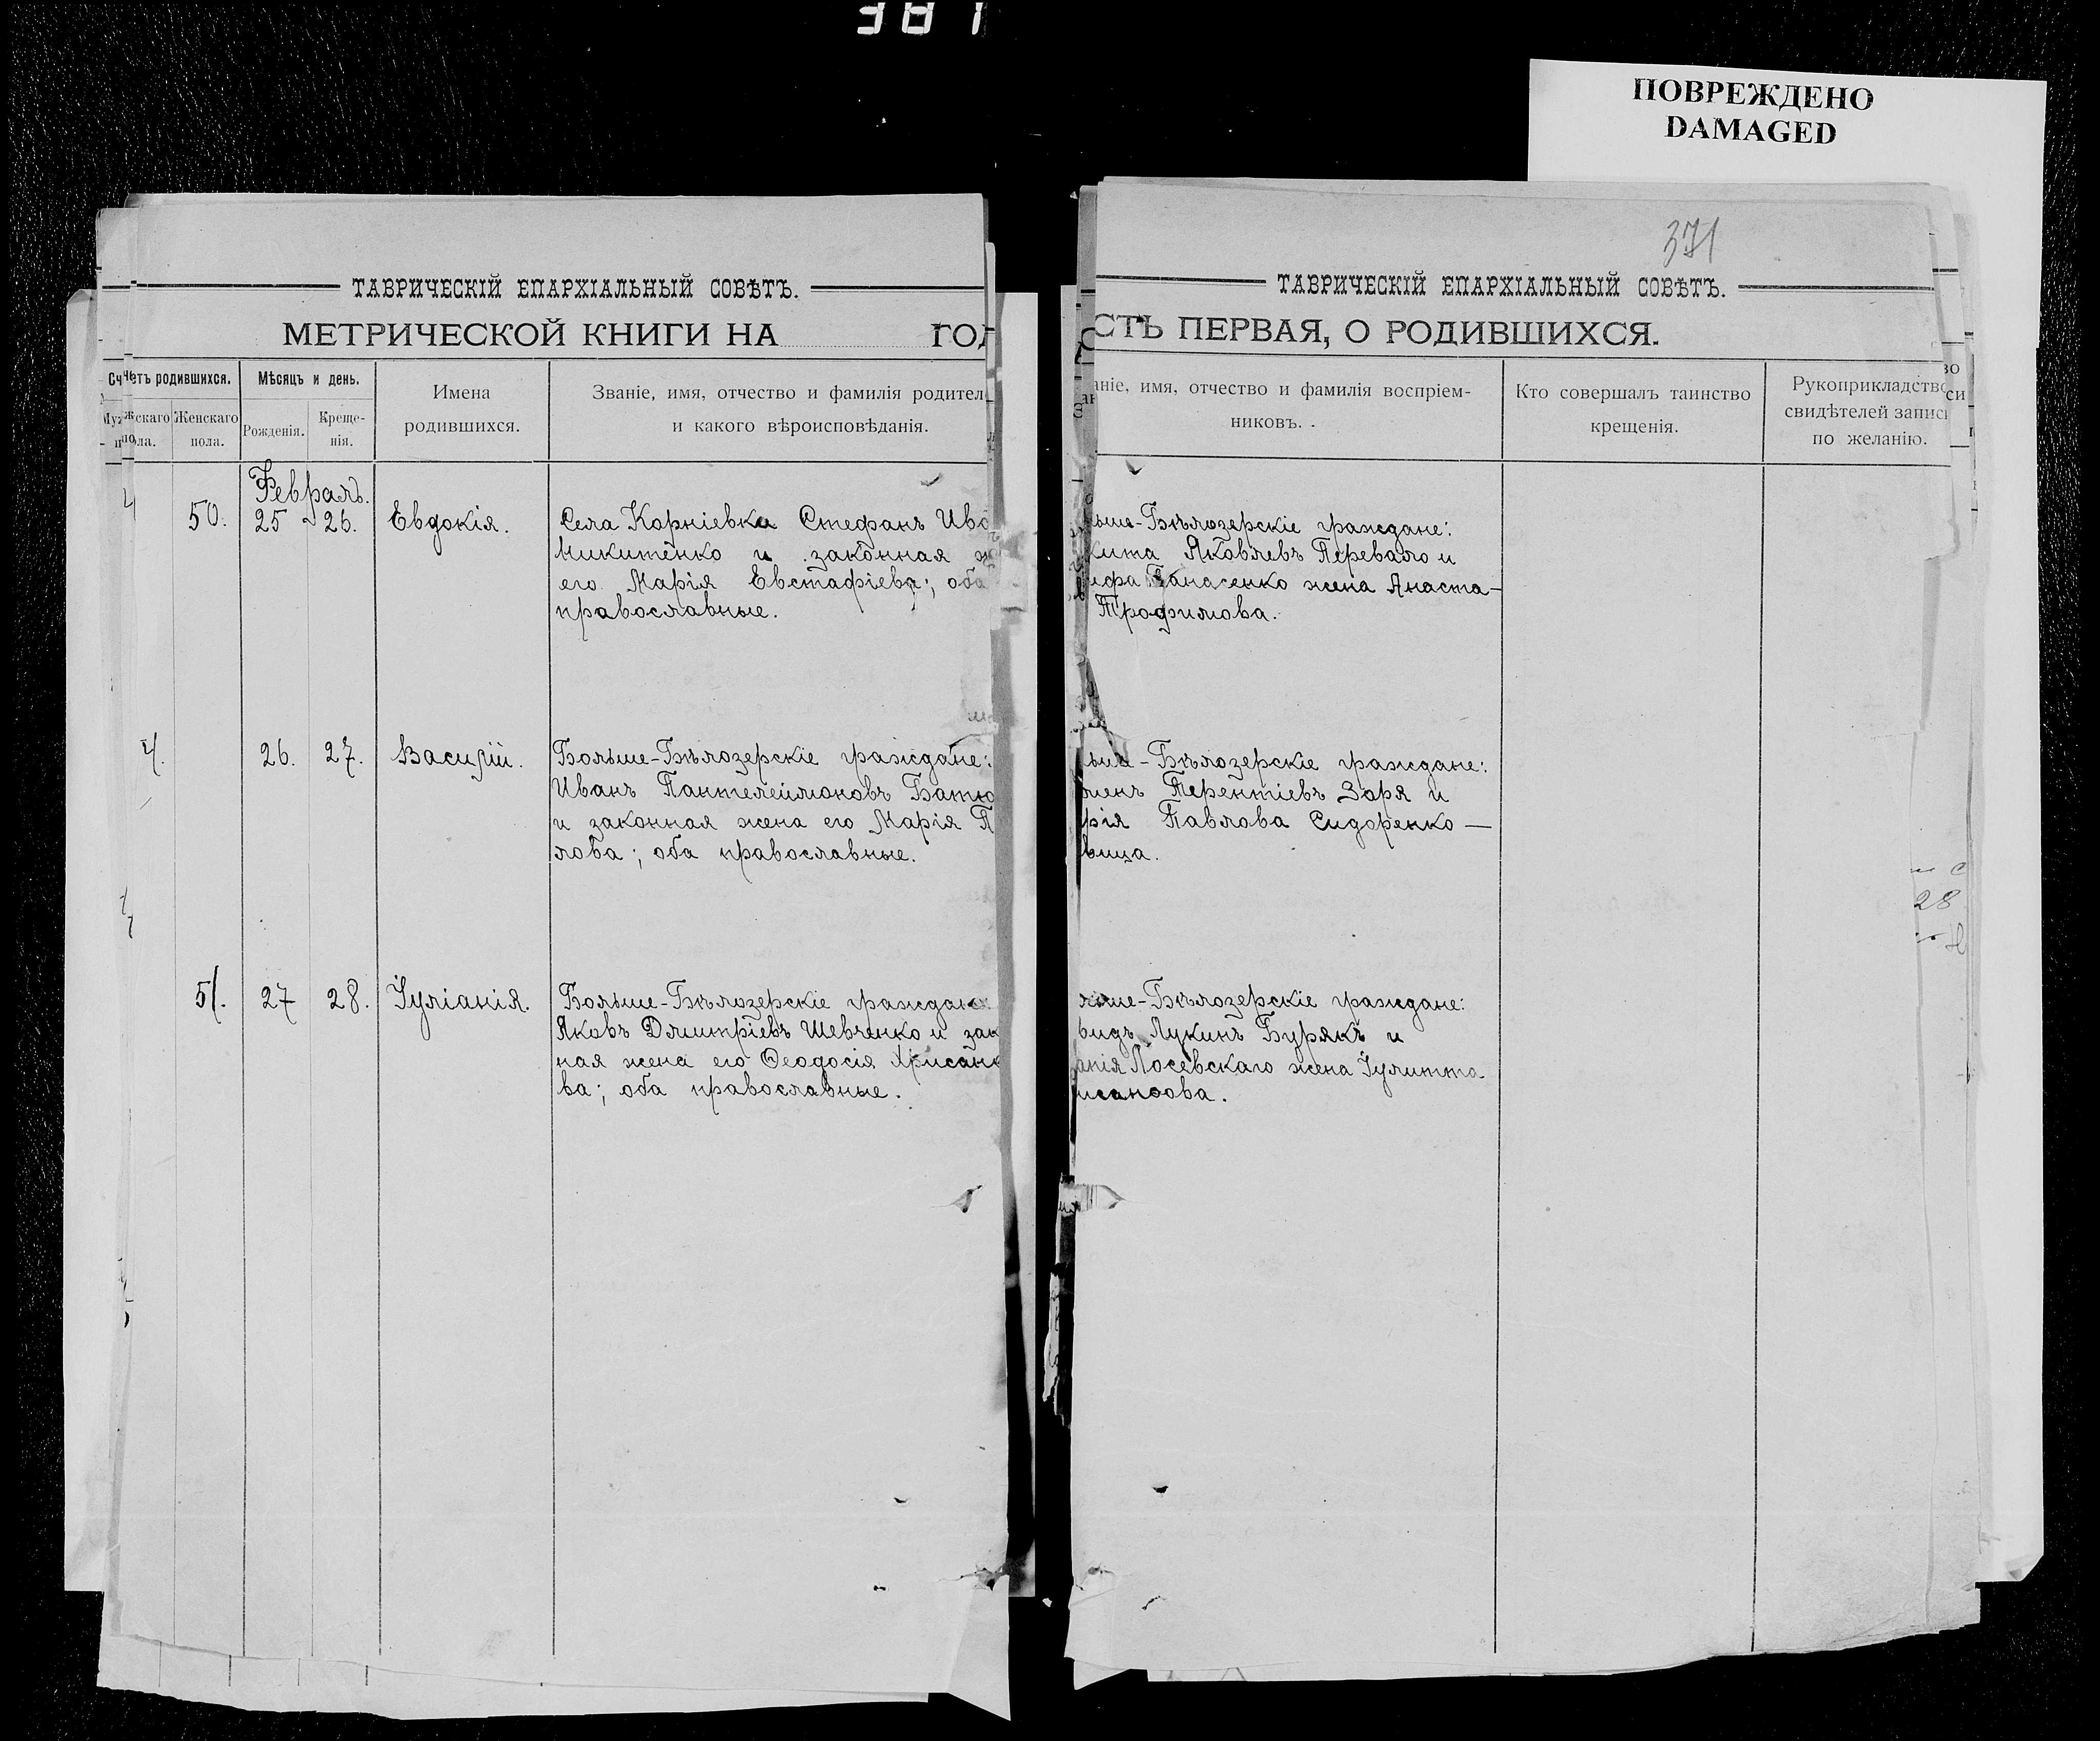 381
ПОВРЕЖДЕНО
DAMAGED
371
ТАВРИЧЕСКІЙ ЕПАРХІАЛЬНЫЙ СОВѢТЪ.
МЕТРИЧЕСКОЙ КНИГИ НА ГОД
Счетъ родившихся.
Мѣсяцъ и день.
Имена
родившихся.
Званіе, имя, отчество и фамилія родител
и какого вѣроисповѣданія.
Мужскаго
пола.
Женскаго
пола.
Рожденія.
Креще-
нія.
Февраль.
50. 25 26. Евдокія.
Села Корніевка Стефанъ Ива
Никитенко и законная ж
его Марія Евстафіева; оба
православные.
4. 26. 27. Василій.
Больше-Бѣлозерскіе граждане:
Иванъ Пантелеймоновъ Батю
и законная жена его Марія П
лова; оба православные.
51. 27 28. Іуліанія.
Больше-Бѣлозерскіе граждане
Яковъ Дмитріевъ Шевченко и зак
ная жена его Ѳеодосія Хрисанѳ
ва; оба православные.
ТАВРИЧЕСКІЙ ЕПАРХІАЛЬНЫЙ СОВѢТЪ.
СТЬ ПЕРВАЯ, О РОДИВШИХСЯ.
аніе, имя, отчество и фамилія воспріем-
никовъ.
Кто совершалъ таинство
крещенія.
Рукоприкладство
свидѣтелей записи
по желанію.
ьше-Бѣлозерскіе граждане:
кита Яковлевъ Перевало и
ифа Панасенко жена Анаста-
Трофимова.
ьше-Бѣлозерскіе граждане:
менъ Терентіевъ Заря и
рія Павлова Сидоренко —
вица.
льше-Бѣлозерскіе граждане:
видъ Лукинъ Бурякъ и
анія Лосевскаго жена Іулитта
исанѳова.
28